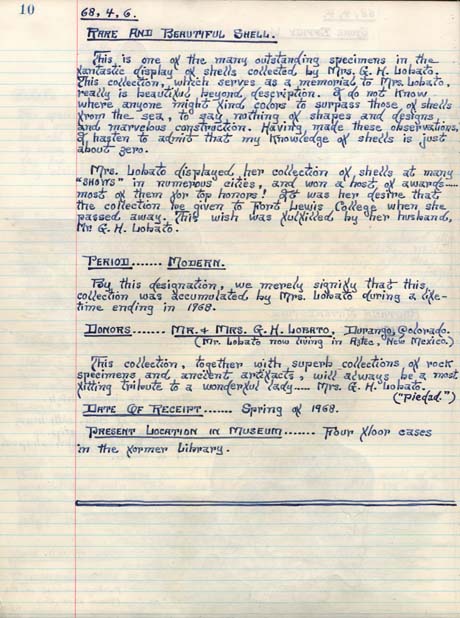 10
68, 4, 6.
RARE AND BEAUTIFUL SHELL.
This is one of the many outstanding specimens in the
fantastic display of shells collected by Mrs. G. H. Lobato.
This collection, which serves as a memorial to Mrs. Lobato,
really is beautiful beyond description. I do not know
where anyone might find colors to surpass those of shells
from the sea, to say nothing of shapes and designs
and marvelous construction. Having made these observations,
I hasten to admit that my knowledge of shells is just
about zero.
Mrs. Lobato displayed her collection of shells at many
"SHOWS" in numerous cities, and won a host of awards.....
most of them for top honors! It was her desire that
the collection be given to Fort Lewis College when she
passed away. This wish was fulfilled by her husband,
Mr. G. H. Lobato.
PERIOD....... MODERN.
By this designation, we merely signify that this
collection was accumulated by Mrs. Lobato during a life-
time ending in 1968.
DONORS...... MR. & MRS. G. H. LOBATO, Durango, Colorado.
(Mr. Lobato now living in Aztec, New Mexico.)
This collection, together with superb collections of rock
specimens and ancient artifacts, will always be a most
fitting tribute to a wonderful lady..... Mrs. G. H. Lobato.
("Piedad.")
DATE OF RECEIPT....... Spring of 1968.
PRESENT LOCATION IN MUSEUM....... Four floor cases
in the former Library.